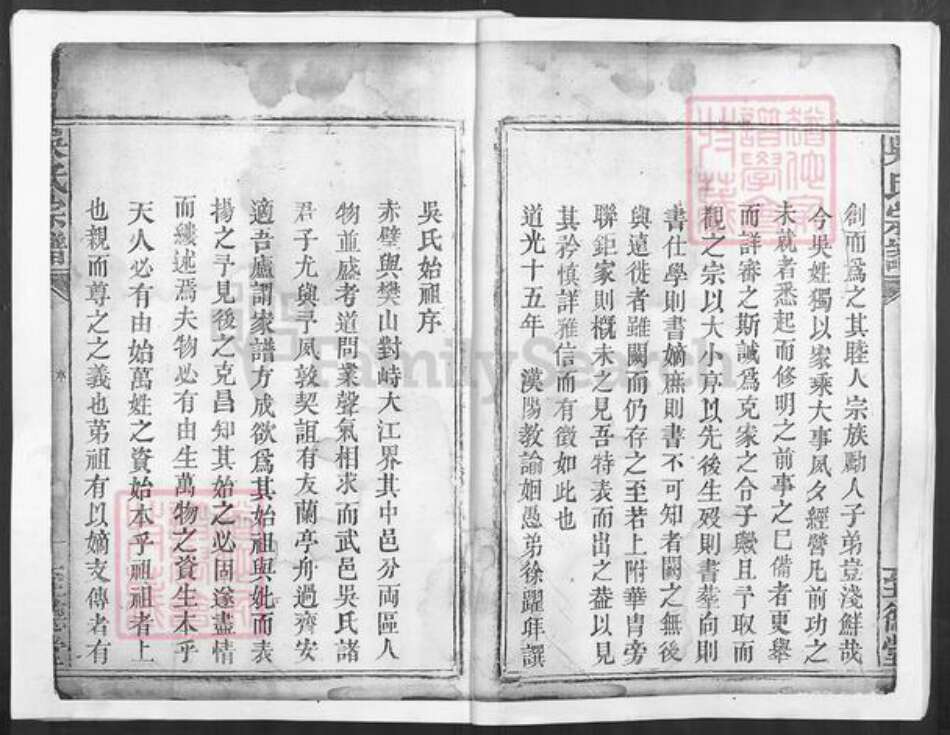 吳氏宗譜
至德堂
創而爲之其睦人宗族勵人子弟豈淺鮮哉
今吳姓獨以家乘大事夙夕經營凡前功之
未就者悉起而修明之前事之已備者更舉
而詳審之斯誠爲克家之令子歟且予取而
觀之宗以大小京以先後生歿則書塟向則
書仕學則書嫡庶則書不可知者闕之無後
與遠徙者雖闕而仍存之至若上附華胄旁
聯鉅家則概未之見吾特表而出之葢以見
其矜慎詳雅信而有徵如此也
道光十五年 漢陽教諭姻愚弟徐躍
譔
吳氏始祖序
赤壁與樊山對峙大江界其中邑分両區人
物並盛考道問業聲氣相求而武邑吳氏諸
君子尤與予夙敦契誼有友蘭亭舟過齊安
適吾廬謂家譜方成欲爲其始祖與妣而表
揚之予見後之克昌知其始之必固遂盡情
而縷述焉夫物必有由生萬物之資生本乎
天人必有由始萬姓之資始本乎祖祖者上
也親而尊之之義也第祖有以嫡支傳者有
吳氏宗譜
序
至德堂
FamilySearch